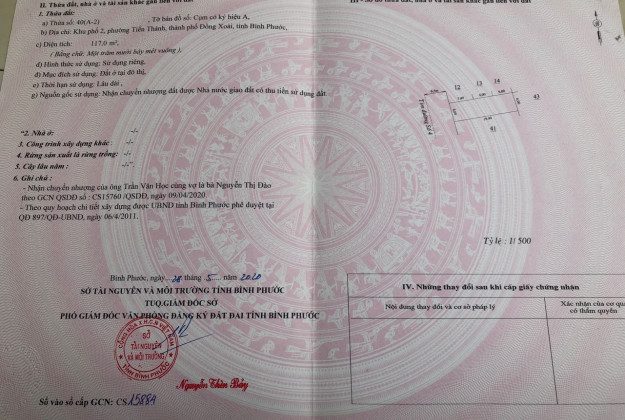 II. Thửa đất, nhà ở và tài sản khác gắn liền với đất
1. Thửa đất:
a) Thửa số: 40(A-2) , Tờ bản đồ số: Cụm có ký hiệu A,
b) Địa chỉ: Khu phố 2, phường Tiến Thành, thành phố Đồng Xoài, tỉnh Bình Phước,
c) Diện tích: 117,0 m²,
( Bằng chữ: Một trăm mười bảy mét vuông ),
d) Hình thức sử dụng: Sử dụng riêng,
đ) Mục đích sử dụng: Đất ở tại đô thị,
e) Thời hạn sử dụng: Lâu dài ,
g) Nguồn gốc sử dụng: Nhận chuyển nhượng đất được Nhà nước giao đất có thu tiền sử dụng đất.
"2. Nhà ở: -/-
3. Công trình xây dựng khác: -/-
4. Rừng sản xuất là rừng trồng: -/-
5. Cây lâu năm : -/-"
6. Ghi chú :
- Nhận chuyển nhượng của ông Trần Văn Học cùng vợ là bà Nguyễn Thị Đào
theo GCN QSDĐ số : CS15760 /QSDĐ, ngày 09/04/2020.
- Theo quy hoạch chi tiết xây dựng được UBND tỉnh Bình Phước phê duyệt tại
QĐ 897/QĐ-UBND, ngày 06/4/2011.
Bình Phước, ngày 28 tháng 5 năm 2020
SỞ TÀI NGUYÊN VÀ MÔI TRƯỜNG TỈNH BÌNH PHƯỚC
TUQ.GIÁM ĐỐC SỞ
PHÓ GIÁM ĐỐC VĂN PHÒNG ĐĂNG KÝ ĐẤT ĐAI TỈNH BÌNH PHƯỚC
CỘNG HÒA X.H.C.N VIỆT NAM
SỞ
TÀI NGUYÊN
VÀ MÔI TRƯỜNG
TỈNH BÌNH PHƯỚC
Nguyễn Thìn Bảy
Số vào sổ cấp GCN: CS 15884
12 13 14
43
41
Tỷ lệ : 1/ 500
IV. Những thay đổi sau khi cấp giấy chứng nhận
Nội dung thay đổi và cơ sở pháp lý
Xác nhận của cơ qu
có thẩm quyền